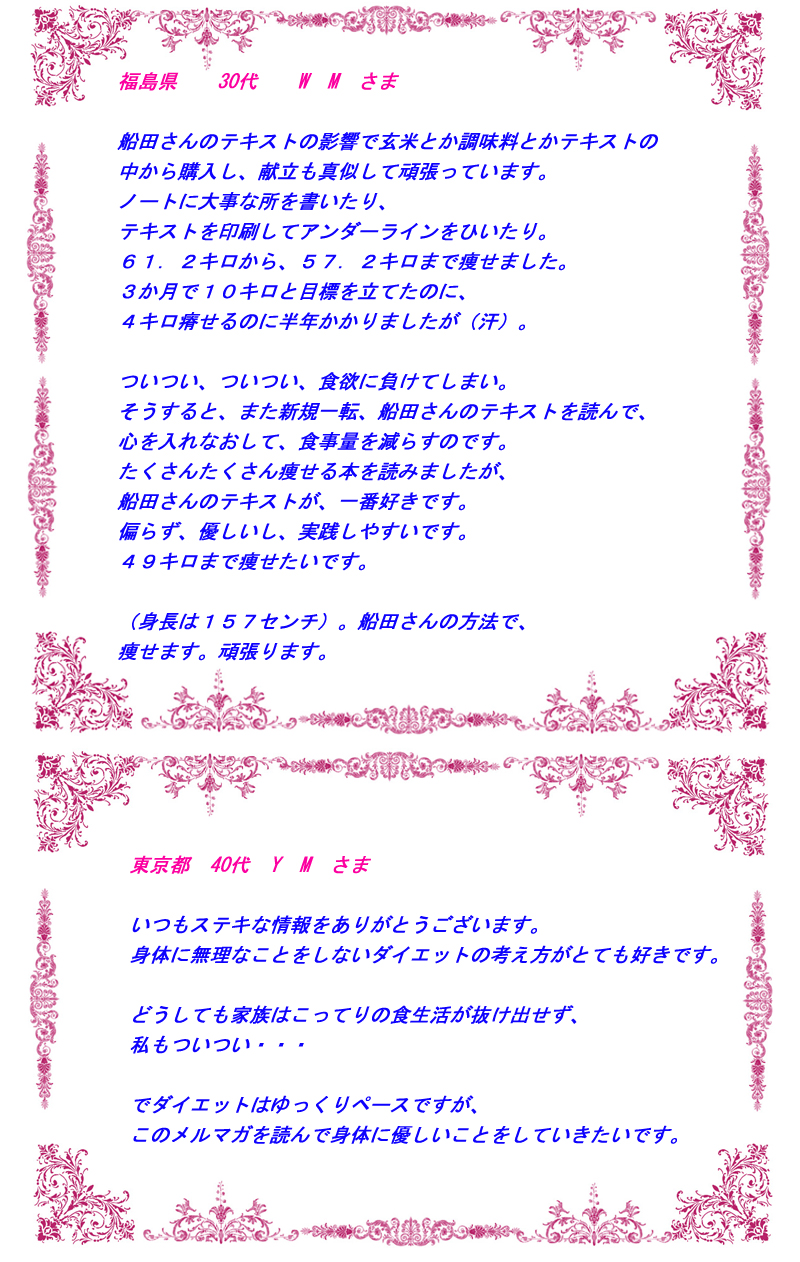 福島県　　30代　　W　M　さま
船田さんのテキストの影響で玄米とか調味料とかテキストの
中から購入し、献立も真似して頑張っています。
ノートに大事な所を書いたり、
テキストを印刷してアンダーラインをひいたり。
６１．２キロから、５７．２キロまで痩せました。
３か月で１０キロと目標を立てたのに、
４キロ瘠せるのに半年かかりましたが（汗）。
ついつい、ついつい、食欲に負けてしまい。
そうすると、また新規一転、船田さんのテキストを読んで、
心を入れなおして、食事量を減らすのです。
たくさんたくさん痩せる本を読みましたが、
船田さんのテキストが、一番好きです。
偏らず、優しいし、実践しやすいです。
４９キロまで痩せたいです。
（身長は１５７センチ）。船田さんの方法で、
痩せます。頑張ります。
東京都　40代　Y　M　さま
いつもステキな情報をありがとうございます。
身体に無理なことをしないダイエットの考え方がとても好きです。
どうしても家族はこってりの食生活が抜け出せず、
私もついつい・・・
でダイエットはゆっくりペースですが、
このメルマガを読んで身体に優しいことをしていきたいです。